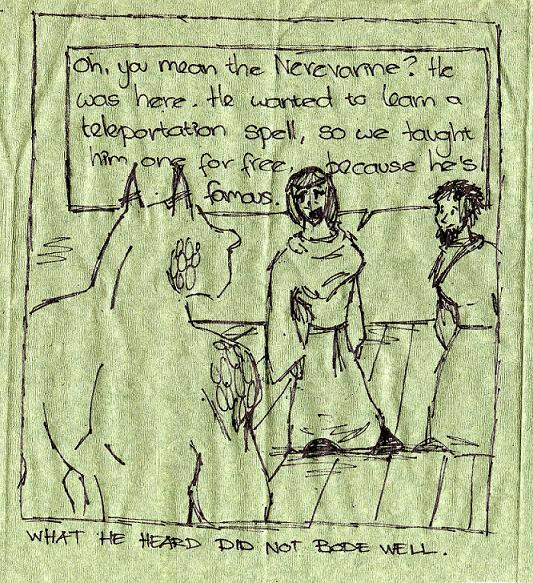 Oh, you mean the Nerevarine? He
was here. He wanted to learn a
teleportation spell, so we taught
him one for free, because he's
famous.
WHAT HE HEARD DID NOT BODE WELL.